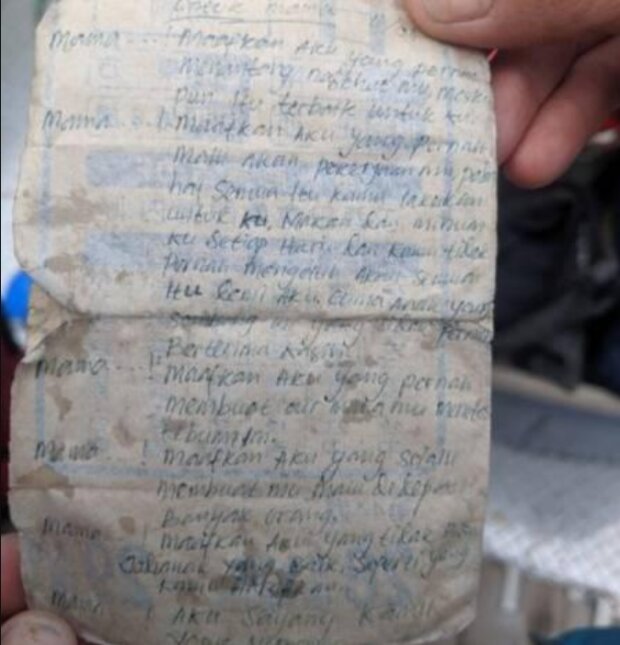 untuk mama
Mama...! Maafkan Aku yang pernah
menantang nasehat mu, meski
pun itu terbaik untuk ku.
Mama...! Maafkan Aku yang pernah
Malu akan pekerjaan mu, pada
hal Semua Itu kamu lakukan
untuk ku, Makan dan minum
ku Setiap Hari. dan kamu tidak
Pernah mengeluh Akan Semua
Itu demi Aku. Cuma Anak yang
yang tidak pernah
Berterima Kasih
Mama...! Maafkan Aku yang pernah
membuat air mata mu menetes
Mama...! Maafkan Aku yang selalu
membuat mu Malu di depan
Banyak orang.
Mama...! Maafkan Aku yang tidak
yang baik, Seperti yang
kamu
Mama...! Aku Sayang Kamu